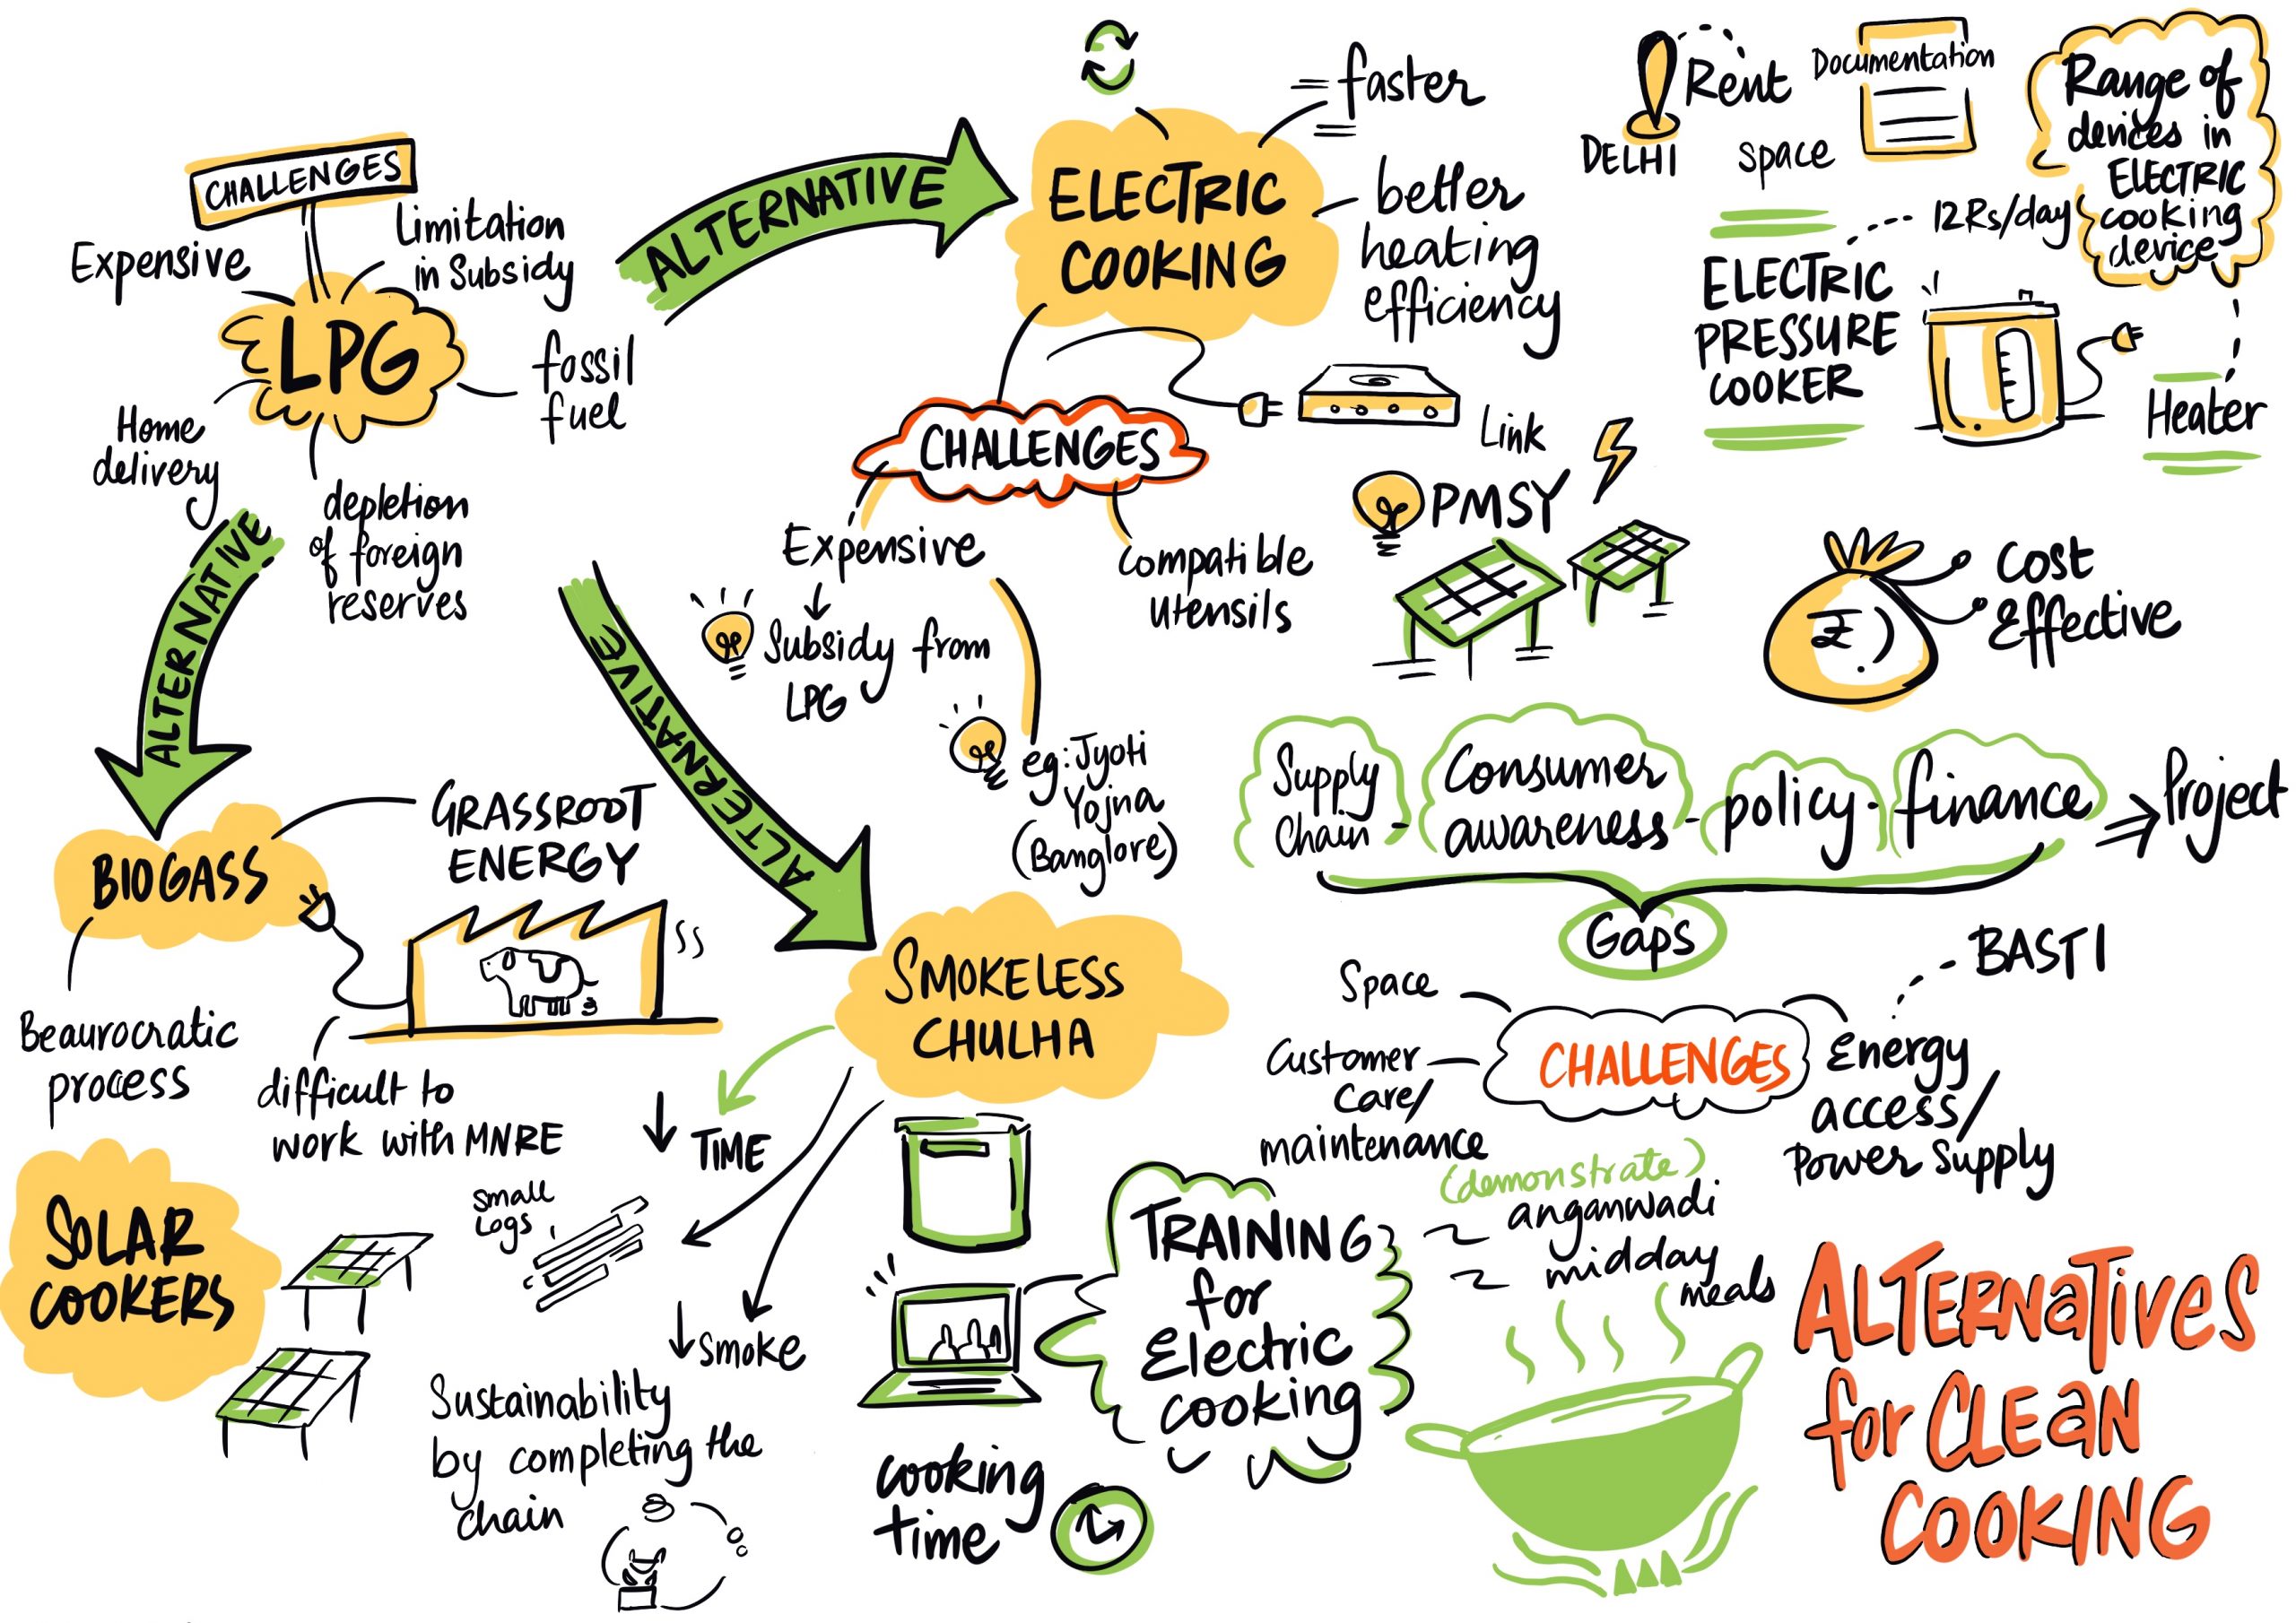 CHALLENGES
Expensive
Limitation
in Subsidy
LPG
fossil
fuel
Home
delivery
depletion
of foreign
reserves
ALTERNATIVE
ALTERNATIVE
ALTERNATIVE
ELECTRIC
COOKING
faster
better
heating
efficiency
CHALLENGES
Expensive
Subsidy from
LPG
eg: Jyoti
Yojna
(Banglore)
compatible
utensils
Link
PMSY
DELHI
Rent
space
Documentation
Range of
devices in
ELECTRIC
cooking
device
12Rs/day
ELECTRIC
PRESSURE
COOKER
Heater
₹
Cost
Effective
Supply
Chain -
Consumer
awareness -
policy -
finance
Project
Gaps
BIOGASS
GRASSROOT
ENERGY
Beaurocratic
process
difficult to
work with MNRE
SOLAR
COOKERS
SMOKELESS
CHULHA
↓ TIME
small
Logs
↓ Smoke
Sustainability
by completing the
chain
TRAINING
for
Electric
cooking
cooking
time
CHALLENGES
Space
Customer
Care/
maintenance
BASTI
Energy
access/
Power Supply
(demonstrate)
anganwadi
midday
meals
ALTERNATIVES
for CLEAN
COOKING